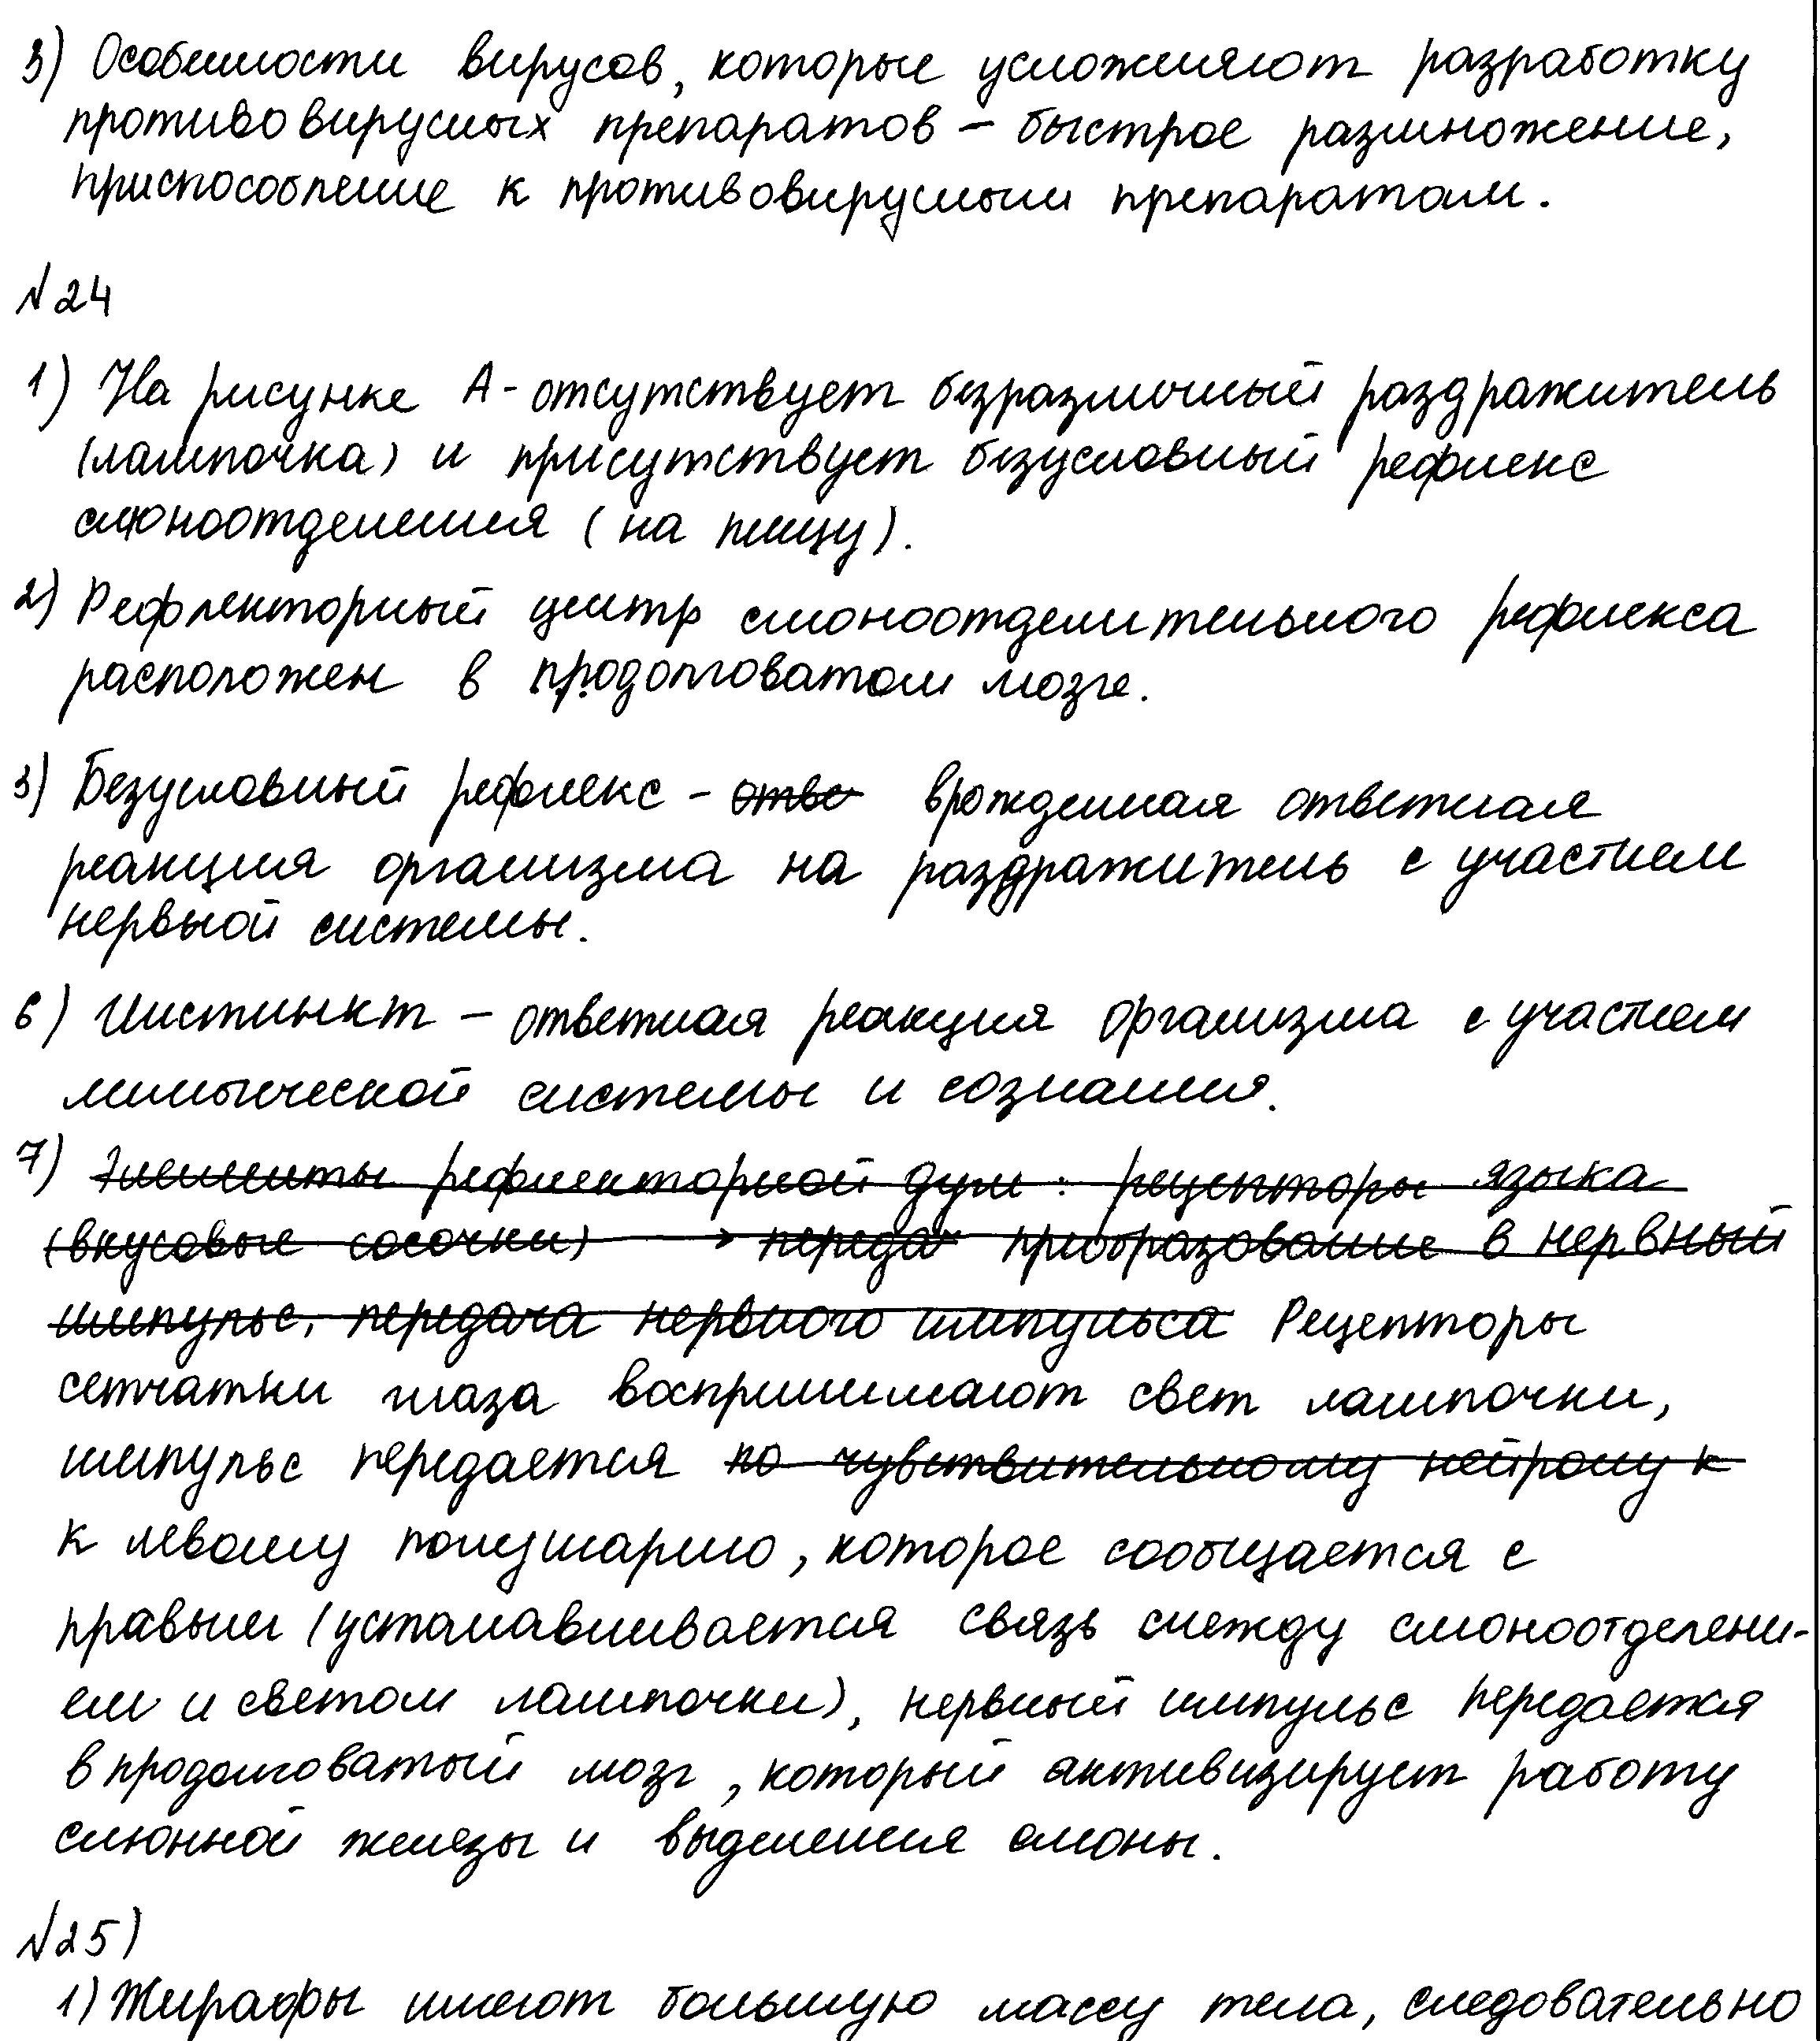 3) Особенности вирусов, которые усложняют разработку
противовирусных препаратов – быстрое размножение,
приспособление к противовирусным препаратам.
№24
1) На рисунке А - отсутствует безразличный раздражитель
(лампочка) и присутствует безусловный рефлекс
слюноотделения (на пищу).
2) Рефлекторный центр слюноотделительного рефлекса
расположен в продолговатом мозге.
3) Безусловный рефлекс - отве врожденная ответная
реакция организма на раздражитель с участием
нервной системы.
6) Инстинкт – ответная реакция организма с участием
лимбической системы и сознания.
7) Элементы рефлекторной дуги: рецепторы языка
(вкусовые сосочки) → передач преобразование в нервный
импульс, передача нервного импульса Рецепторы
сетчатки глаза воспринимают свет лампочки,
импульс передается по чувствительному нейрону к
к левому полушарию, которое сообщается с
правым (устанавливается связь между слюноотделени-
ем и светом лампочки), нервный импульс передается
в продолговатый мозг, который активизирует работу
слюнной железы и выделения слюны.
№25)
1) Жирафы имеют большую массу тела, следовательно